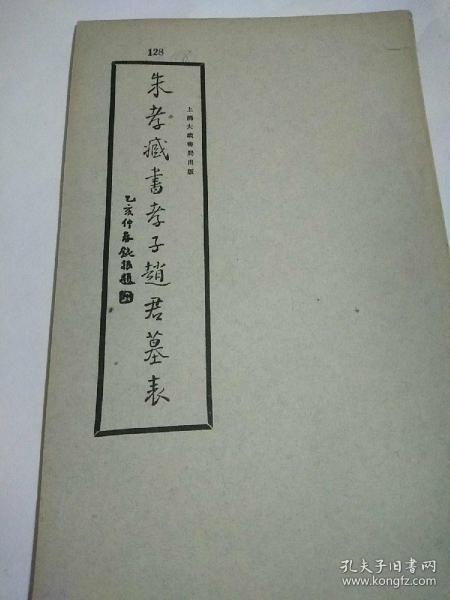 128
上海大众书局出版
朱孝臧書孝子趙君墓表
乙亥仲春鐵珊題
孔夫子旧书网
www.kongfz.com